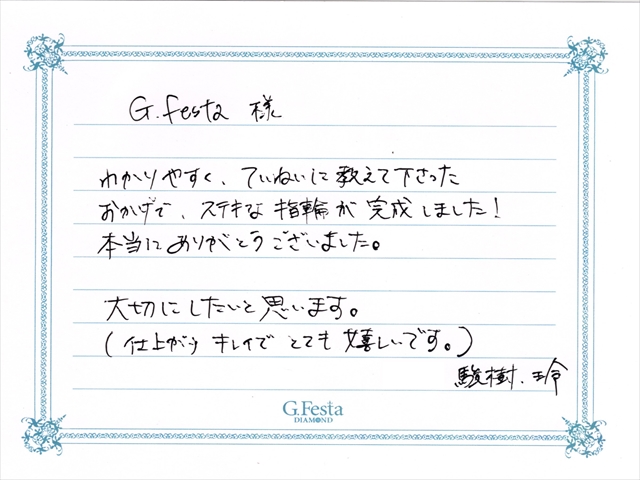 G.festa 様
わかりやすく、ていねいに教えて下さった
おかげで、ステキな指輪が完成しました!
本当にありがとうございました。
大切にしたいと思います。
(仕上がりキレイでとても嬉しいです。)
駿樹.玲
G.Festa
DIAMOND